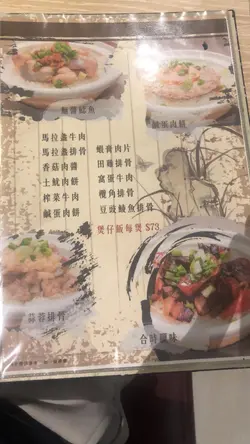 鹹蛋肉餅
馬拉盞牛肉
馬拉盞排骨
香菇肉醬
土魷肉餅
榨菜牛肉
鹹蛋肉餅
蝦醬肉片
田雞排骨
窩蛋牛肉
欖角排骨
豆豉鰻魚排骨
煲仔飯每煲 $73
蒜蓉排骨
合時臘味